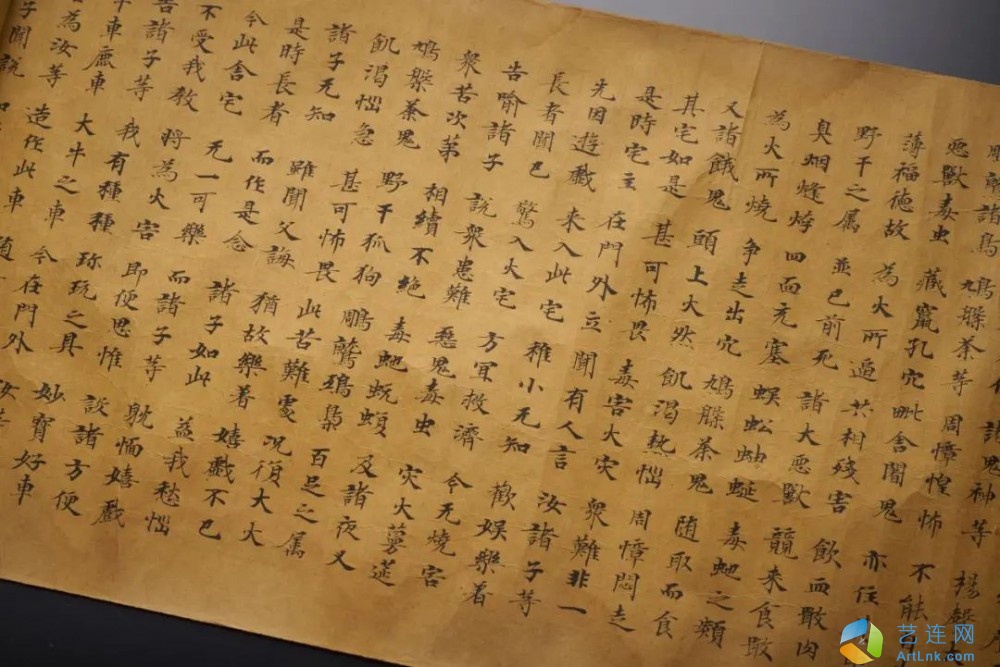 諸鬼神等 揚聲
諸鳥 鳩槃荼等 周慞惶怖 不能自
惡獸毒虫 藏竄孔穴 毗舍闍鬼 亦住
薄福德故 為火所逼 共相殘害 飲血噉肉
野干之属 並已前死 諸大惡獸 競来食噉
臭烟熢㶿 四面充塞 蜈蚣蚰蜒 毒虵之類
為火所燒 爭走出穴 鳩槃荼鬼 随取而食
又諸餓鬼 頭上火然 飢渴熱惱 周慞悶走
其宅如是 甚可怖畏 毒害火灾 衆難非一
是時宅主 在門外立 聞有人言 汝諸子等
先因遊戲 来入此宅 稚小无知 歡娛樂著
長者聞已 驚入火宅 方宜救濟 令无燒害
告喻諸子 說衆患難 惡鬼毒虫 灾火蔓莚
衆苦次第 相續不絶 毒虵蚖蝮 及諸夜叉
鳩槃荼鬼 野干狐狗 鵰鷲鵄梟 百足之属
飢渴惱急 甚可怖畏 此苦難處 况復大火
諸子无知 雖聞父誨 猶故樂著 嬉戲不已
是時長者 而作是念 諸子如此 益我愁惱
今此舍宅 无一可樂 而諸子等 躭湎嬉戲
不受我教 將為火害 即便思惟 設諸方便
告諸子等 我有種種 珎玩之具 妙寶好車
羊車鹿車 大牛之車 今在門外 汝等
為汝等 造作此車 随
子聞說 如
艺连网
ArtLnk.com